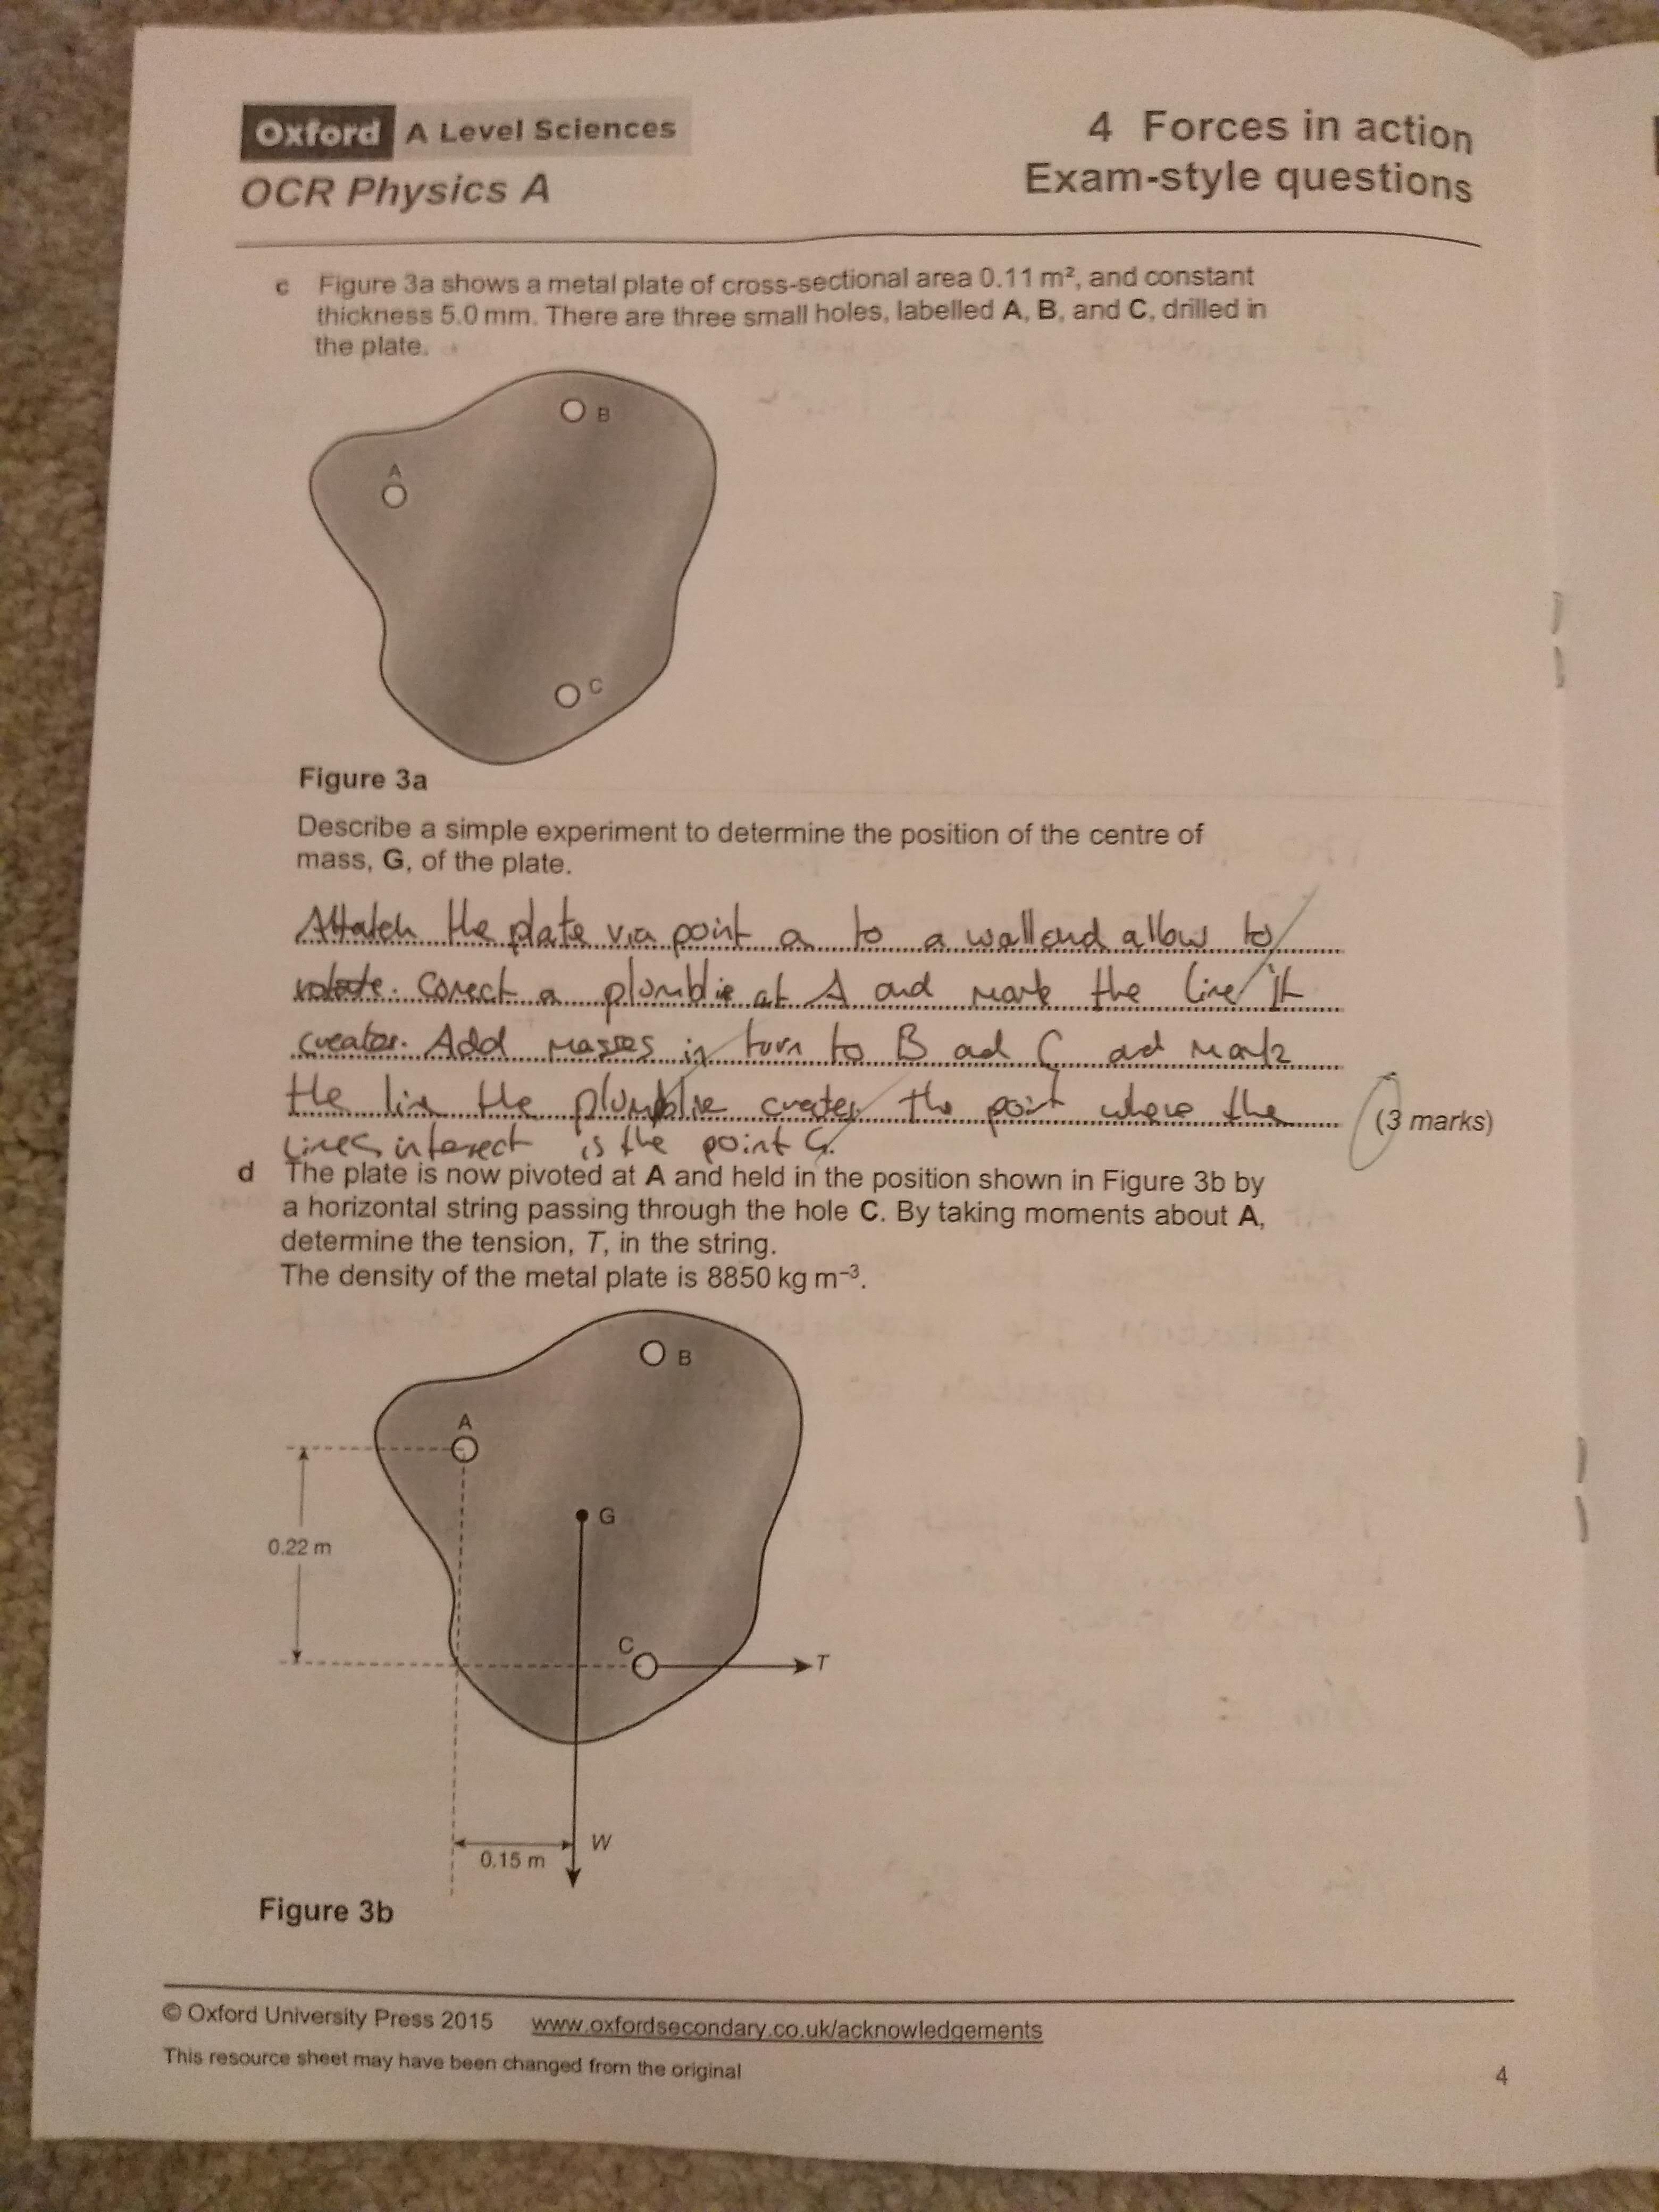 Oxford A Level Sciences
OCR Physics A
4 Forces in action
Exam-style questions
c Figure 3a shows a metal plate of cross-sectional area 0.11 m², and constant
thickness 5.0 mm. There are three small holes, labelled A, B, and C, drilled in
the plate.
B
A
C
Figure 3a
Describe a simple experiment to determine the position of the centre of
mass, G, of the plate.
Attatch the plate via point a to a wall and allow to
rotate. Conect a plumblie at A and mark the line it
creates. Add masses in turn to B ad C ad mark
the lin the plumblie creates the point where the
(3 marks)
lines intersect is the point G.
d The plate is now pivoted at A and held in the position shown in Figure 3b by
a horizontal string passing through the hole C. By taking moments about A,
determine the tension, T, in the string.
The density of the metal plate is 8850 kg m⁻³.
B
A
G
0.22 m
C
T
W
0.15 m
Figure 3b
© Oxford University Press 2015 www.oxfordsecondary.co.uk/acknowledgements
This resource sheet may have been changed from the original
4